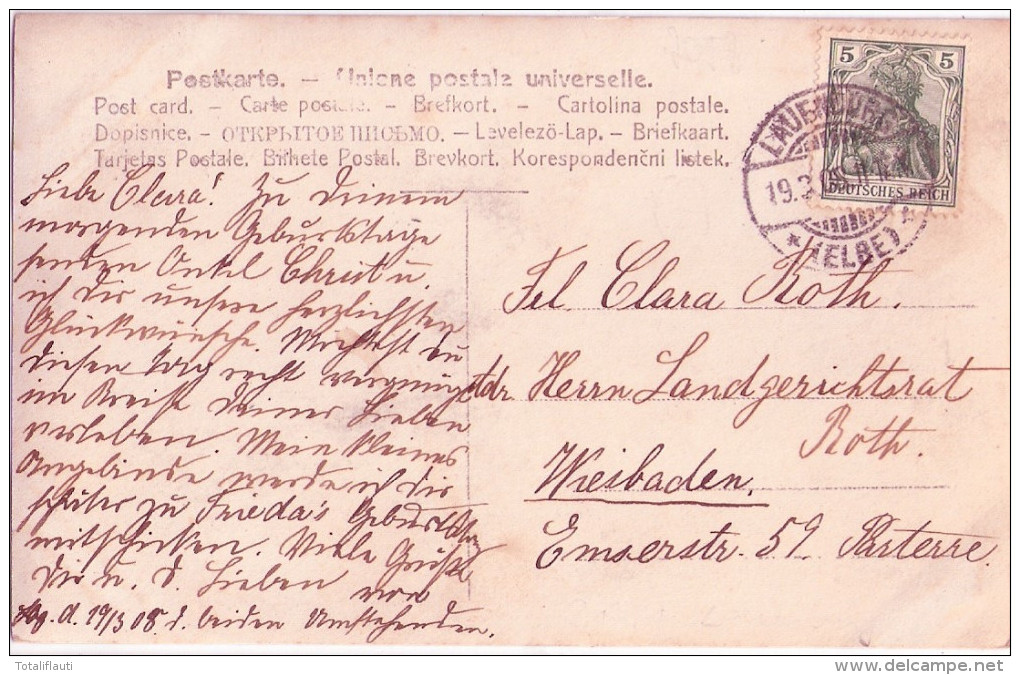 Postkarte. – Unione postale universelle.
Post card. – Carte postale. – Brefkort. – Cartolina postale.
Dopisnice. – ОТКРЫТОЕ ПИСЬМО. – Levelező-Lap. – Briefkaart.
Tarjetas Postale. Bilhete Postal. Brevkort. Korespondenčni listek.
5 5
DEUTSCHES REICH
LAUENBURG
19.3.
* (ELBE)
Liebe Clara! Zu Deinem
morgenden Geburtstage
senden Onkel Christ u.
ich Dir unsere herzlichsten
Glückwünsche. Möchtest du
diesen Tag recht vergnügt
im Kreise Deiner Lieben
verleben. Mein kleines
Angebinde werde ich dir
später zu Frieda's Geburtstag
mitschicken. Viele Grüße
Dir u. d. Lieben von
d. 19/3 08. d. beiden Umstehenden.
Frl. Clara Roth.
Adr. Herrn Landgerichtsrat
Roth.
Wiesbaden.
Emserstr. 52 Parterre.
Totaliflauti
www.delcampe.net